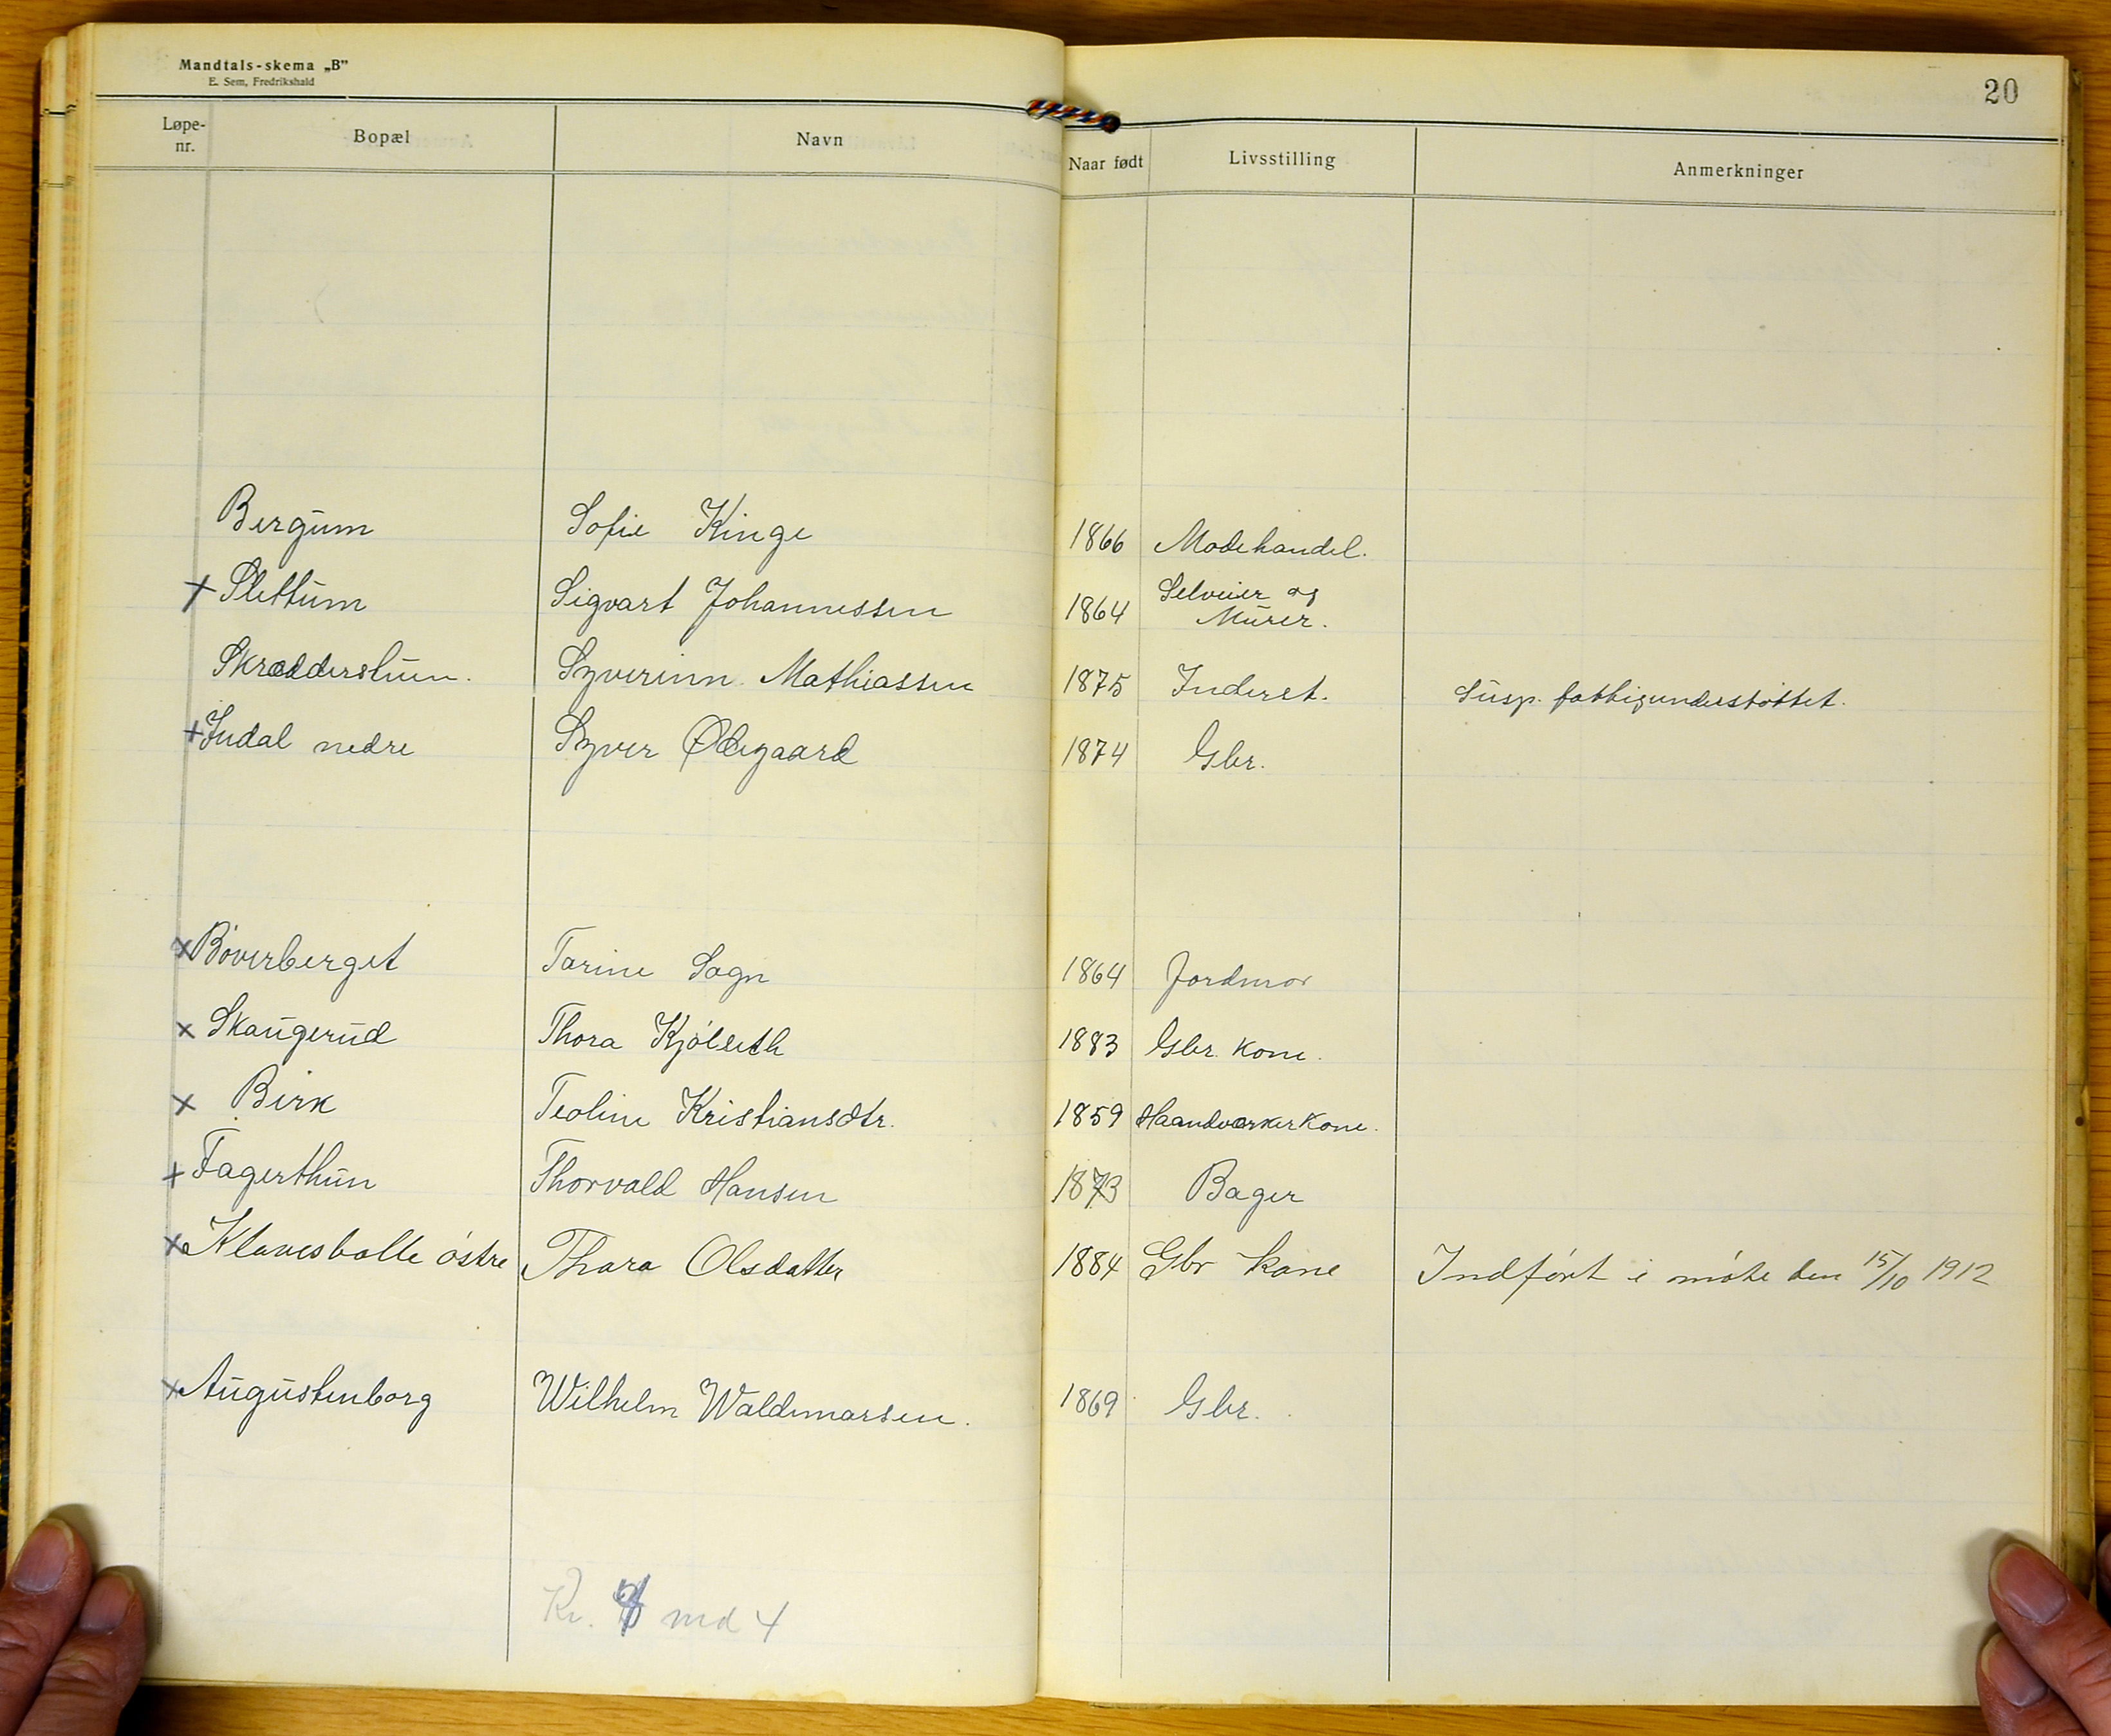 Mandtals-skema „B"
E. Sem, Fredrikshald
20
Løpe-nr. Bopæl Navn Naar født Livsstilling Anmerkninger
Bergum Sofie Kinge 1866 Modehandel.
+ Slettum Sigvart Johannessen 1864 Selveier og
Murer.
Skrædderstuen. Syverinn Mathiassen 1875 Inderst. Susp. fattigunderstøttet.
+ Indal nedre Syver Ødegaard 1874 Gbr.
x Böverberget Tarine Sogn 1864 Jordmor
x Skaugerud Thora Kjölseth 1883 Gbr. kone.
x Birk Teoline Kristiansdtr. 1859 Haandværkerkone.
+ Fagerthun Thorvald Hansen 1873 Bager
x Klavesbølle östre Thora Olsdatter 1884 Gbr kone Indfört i möte den 15/10 1912
x Augustenborg Wilhelm Waldemarsen. 1869 Gbr.
Kr. md 4